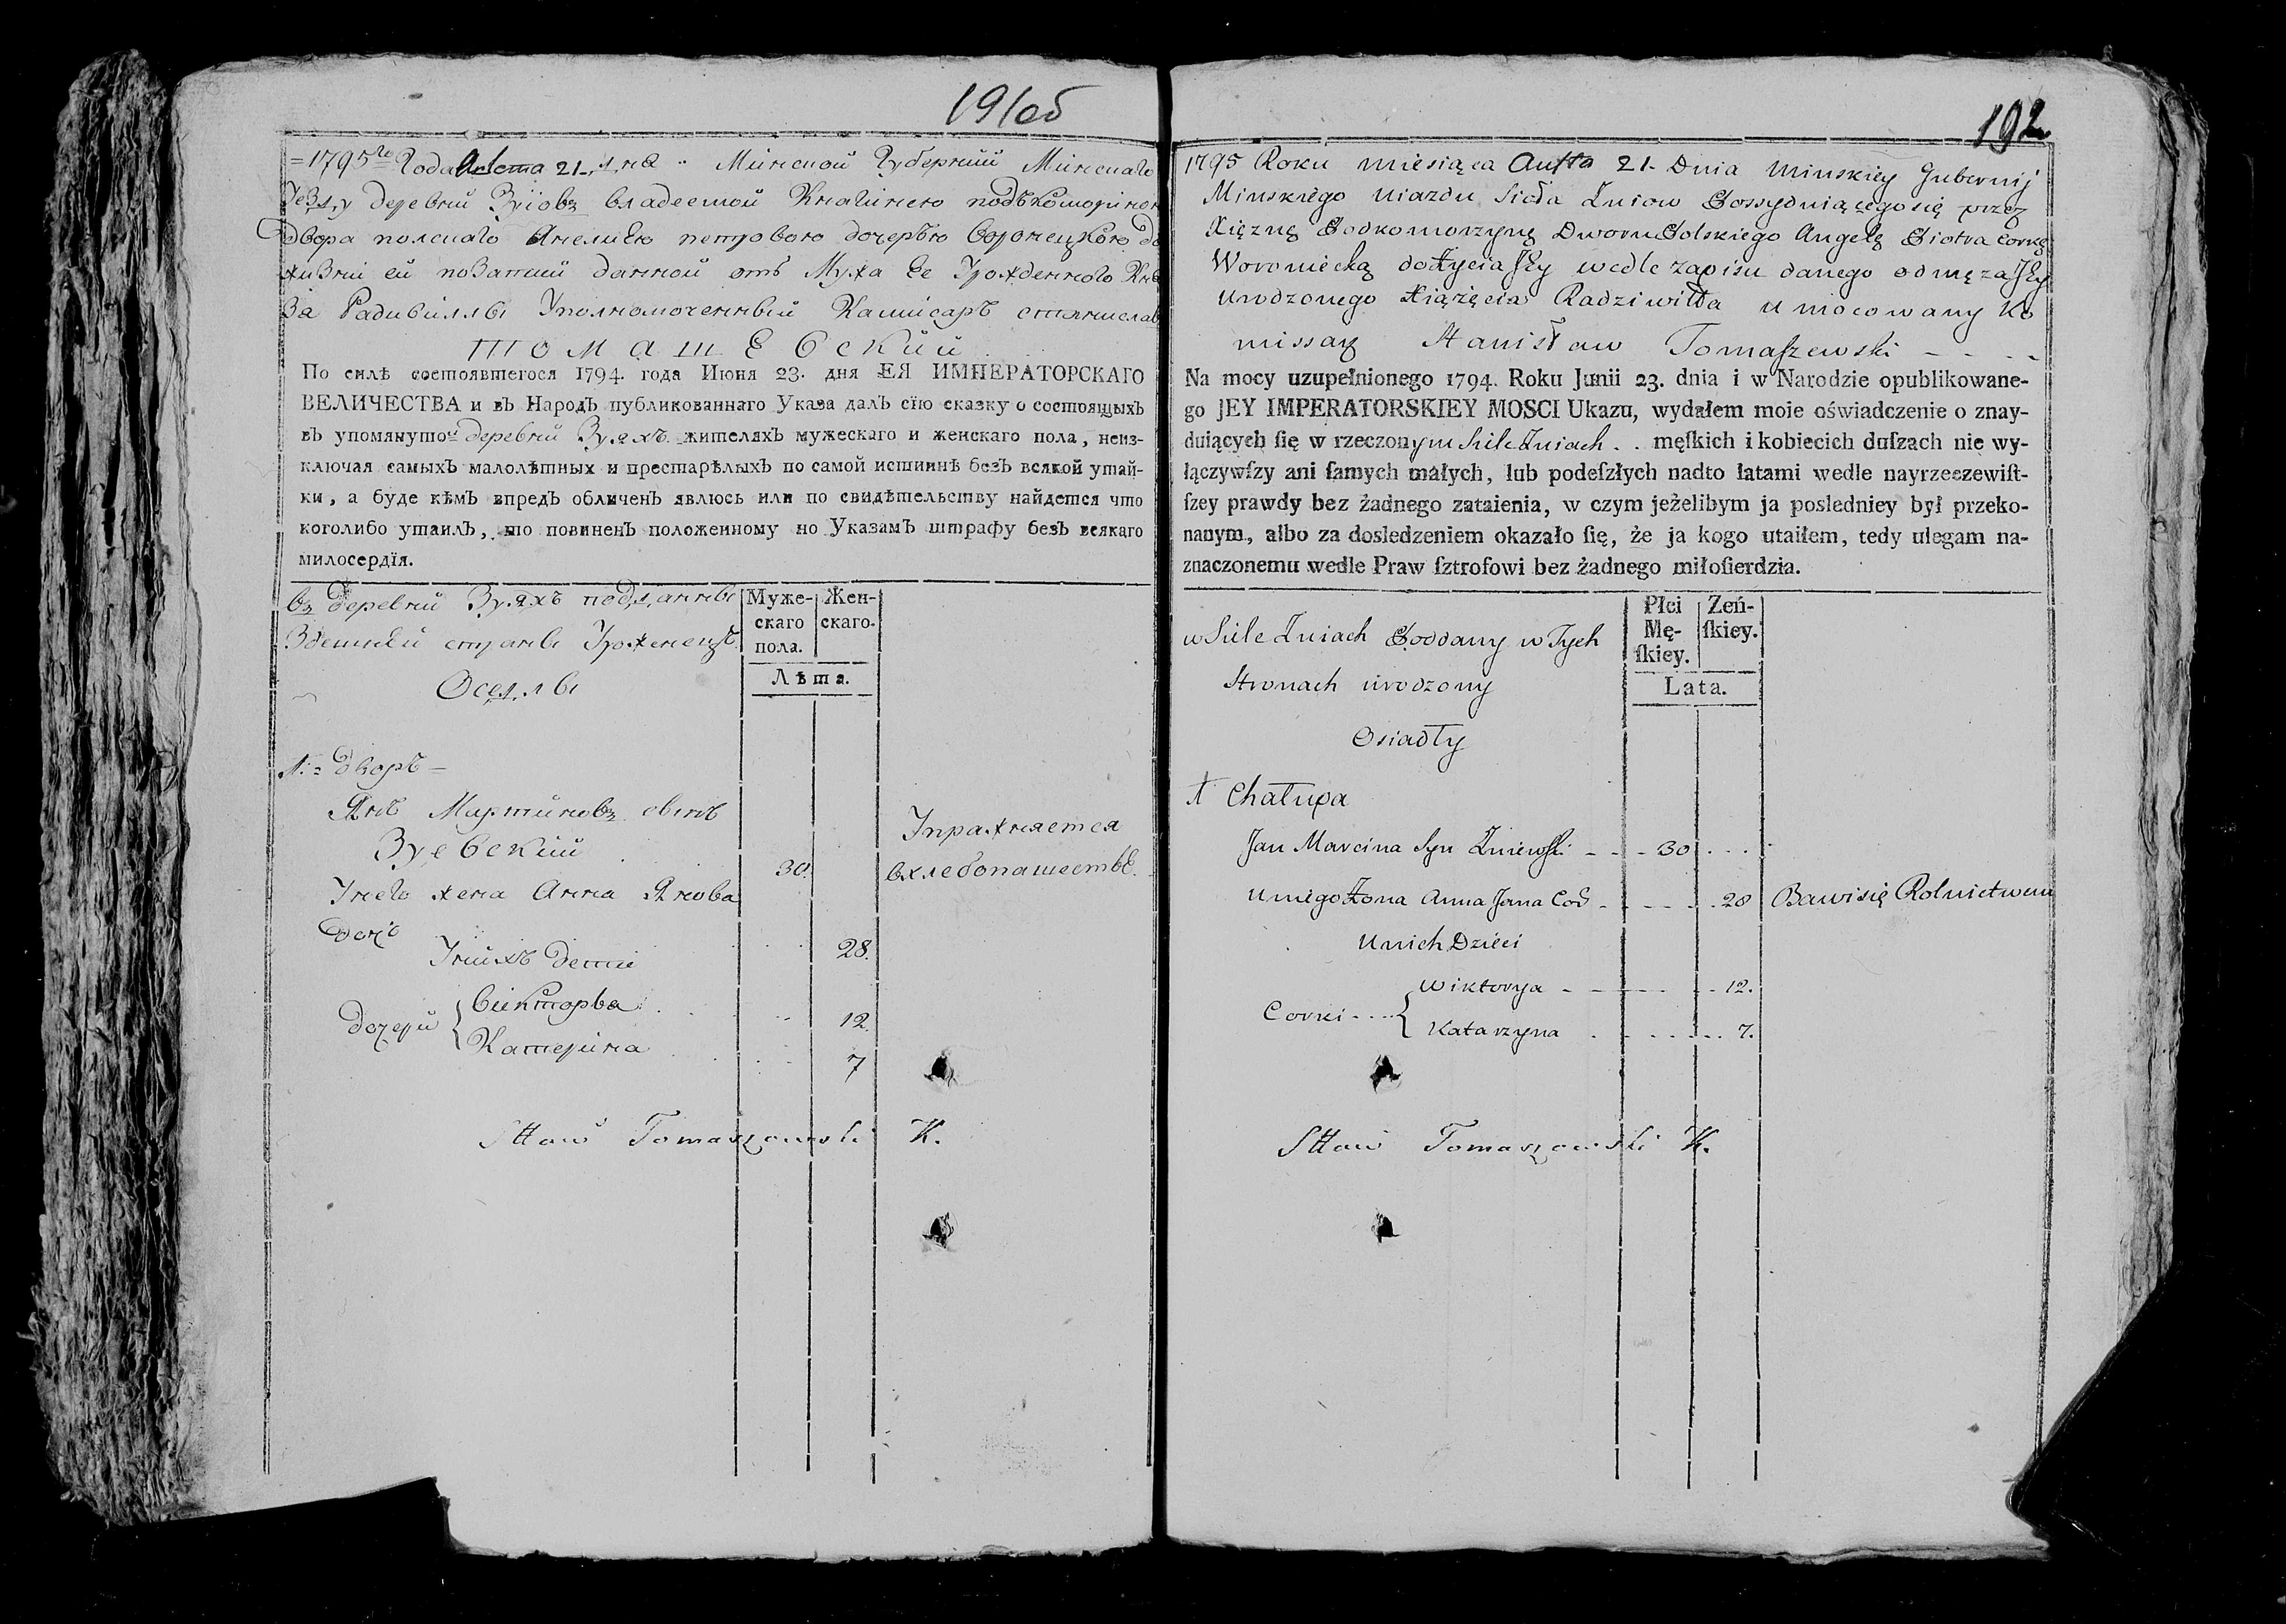 191об
=1795го Года Августа 21. дня Минской Губернии Минскаго
уезду деревни Зуiовъ владеемой Княгинею подъкомориною
Двора полскаго Анелиею петровою дочерью Воронецкою до
живни ей позаписи данной отъ Мужа Ее Урожденного Кня
зя Радивиллы Уполномоченный Камисаръ станислав
ТОМАШЕВСКИЙ
По силѣ состоявшегося 1794. года Июня 23. дня ЕЯ ИМПЕРАТОРСКАГО
ВЕЛИЧЕСТВА и въ НародЪ публикованнаго Указа далЪ сїю сказку о состоящыхЪ
вЪ упомянутой деревни Зуяхъ жителяхЪ мужескаго и женскаго пола, неиз-
ключая самыхЪ малолѣтных и престарѣлыхЪ по самой истиннѣ безЪ всякой утай-
ки, а буде кѣмЪ впредЪ обличенЪ явлюсь или по свидѣтельству найдется что
коголибо утаилЪ, то повиненЪ положенному по УказамЪ штрафу безЪ всякаго
милосердїя.
въ Деревни Зуяхъ подданные
Здешней страны Уроженецъ
Оседлы
Муже-
скаго
пола.
Жен-
скаго.
Лѣта.
1.= Дворъ =
Янъ Мартиновъ сынъ
Зуевский 30.
Упражняется
вхлебопашестве.
Унего жена Анна Янова
Дочь 28.
Унихъ Дети
дочери { Викторыа 12.
Катерина 7
Sttaw Tomaszewski K.
192
1795 Roku miesiąca Aufta 21. Dnia Minskiey Gubernij
Minskiego Uiazdu Sioła Zuiow Possyduiącego się przez
Xiężnę Podkomorzynę Dworu Polskiego Angelę Piotra Corkę
Woroniecką do Życia Jey wedle zapisu danego od męża Jey
Urodzonego Xiążęcia Radziwiłła Umocowany Ko
missarz Stanisław Tomaszewski - - - -
Na mocy uzupełnionego 1794. Roku Junii 23. dnia i w Narodzie opublikowane-
go JEY IMPERATORSKIEY MOSCI Ukazu, wydałem moie oświadczenie o znay-
duiących ſię w rzeczonym Siele Zuiach . . męſkich i kobiecich duſzach nie wy-
łączywſzy ani ſamych małych, lub podeſzłych nadto latami wedle nayrzeczewiſt-
ſzey prawdy bez żadnego zataienia, w czym jeżelibym ja posledniey był przeko-
nanym, albo za dosledzeniem okazało ſię, że ja kogo utaiłem, tedy ulegam na-
znaczonemu wedle Praw ſztrofowi bez żadnego miłoſierdzia.
w Siele Zuiach Poddany w Tych
Stronach urodzony
Osiadły
Płci
Mę-
ſkiey.
Zeń-
ſkiey.
Lata.
1 Chałupa
Jan Marcina Syn Zuiewski - - - 30 . . . .
U niego Żona Anna Jana Cor - - - - - 28 Bawi się Rolnictwem
U nich Dzieci
Corki .... { Wiktorya - - - - - 12.
Katarzyna . . . . . . 7.
Sttaw Tomaszewski K.